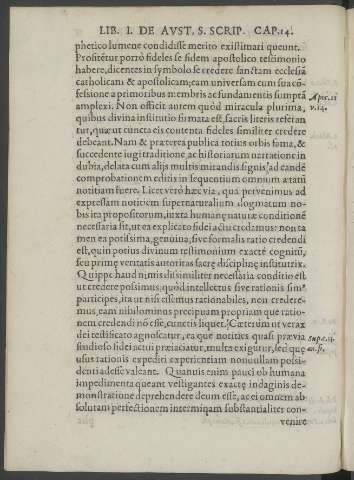 LIB. I. DE AVST. S. SCRIP. CAP.14.
phetico lumene condidisse merito existimari queunt.
Profitêtur porrò fideles se fidem apostolico testimonio
habere, dicentes in symbolo se credere sanctam ecclesiã
catholicam & apostolicam; eam universam cum sua cõ-
fessione a primoribus membris ac fundamentis sumptã
amplexi. Non officit autem quòd miracula plurima,
quibus divina institutio firmata est, sacris literis referan
tur, quæ ut cuncta eis contenta fideles similiter credere
debeant. Nam & præterea publica totius orbis fama, &
succedente iugi traditione ac historiarum narratione in
dubia, delata cum aliis multis mirandis signis ad eandẽ
comprobationem editis in sequentium omnium ætatũ
notitiam fuere. Licet verò hæc via, qua pervenimus ad
expressam notitiem supernaturalium dogmatum no-
bis ita propositorum, iuxta humanę naturæ conditionẽ
necessaria sit, ut ea explicato fidei actu credamus: non ta
men ea potissima, genuina, sive formalis ratio credendi
est, quin potius divinum testimonium exactè cognitũ,
seu primę veritatis autoritas sacrę disciplinę institutrix.
Quippe haud nimis dissimiliter necessaria conditio est
ut credere possimus, quòd intellectus sive rationis simꝰ
participes, ita ut nisi essemus rationabiles, non credere-
mus, eam nihulominos precipuam propriam que ratio-
nem credendi nõ esse, cunctis liquet. Cæterùm ut verax
dei testificato agnoscatur, ea quę notitias quasi prævia
studioso fidei actui præaciatur, multa exigutur, sed quę
usus rationis expediti experientiam nonnullam possi-
dentia desse valeant. Quamuis enim pauci ob humana
impedimenta queant vestigantes exactę indaginis de-
monstratione deprehendere deum esse, ac ei omnem ab
solutam perfectionem interminam substantialiter con-
venire
Apoc. 21
v. 14.
Sup. c. 11.